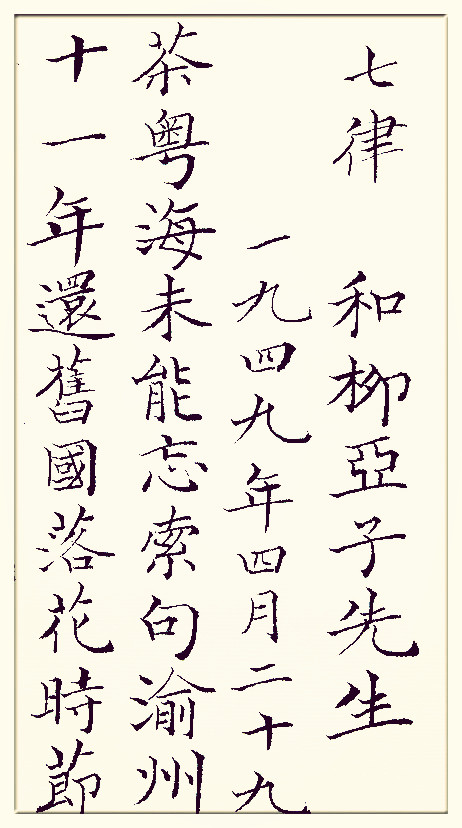 七律 和柳亞子先生
一九四九年四月二十九
茶粤海未能忘索句渝州
十一年還舊國落花時節